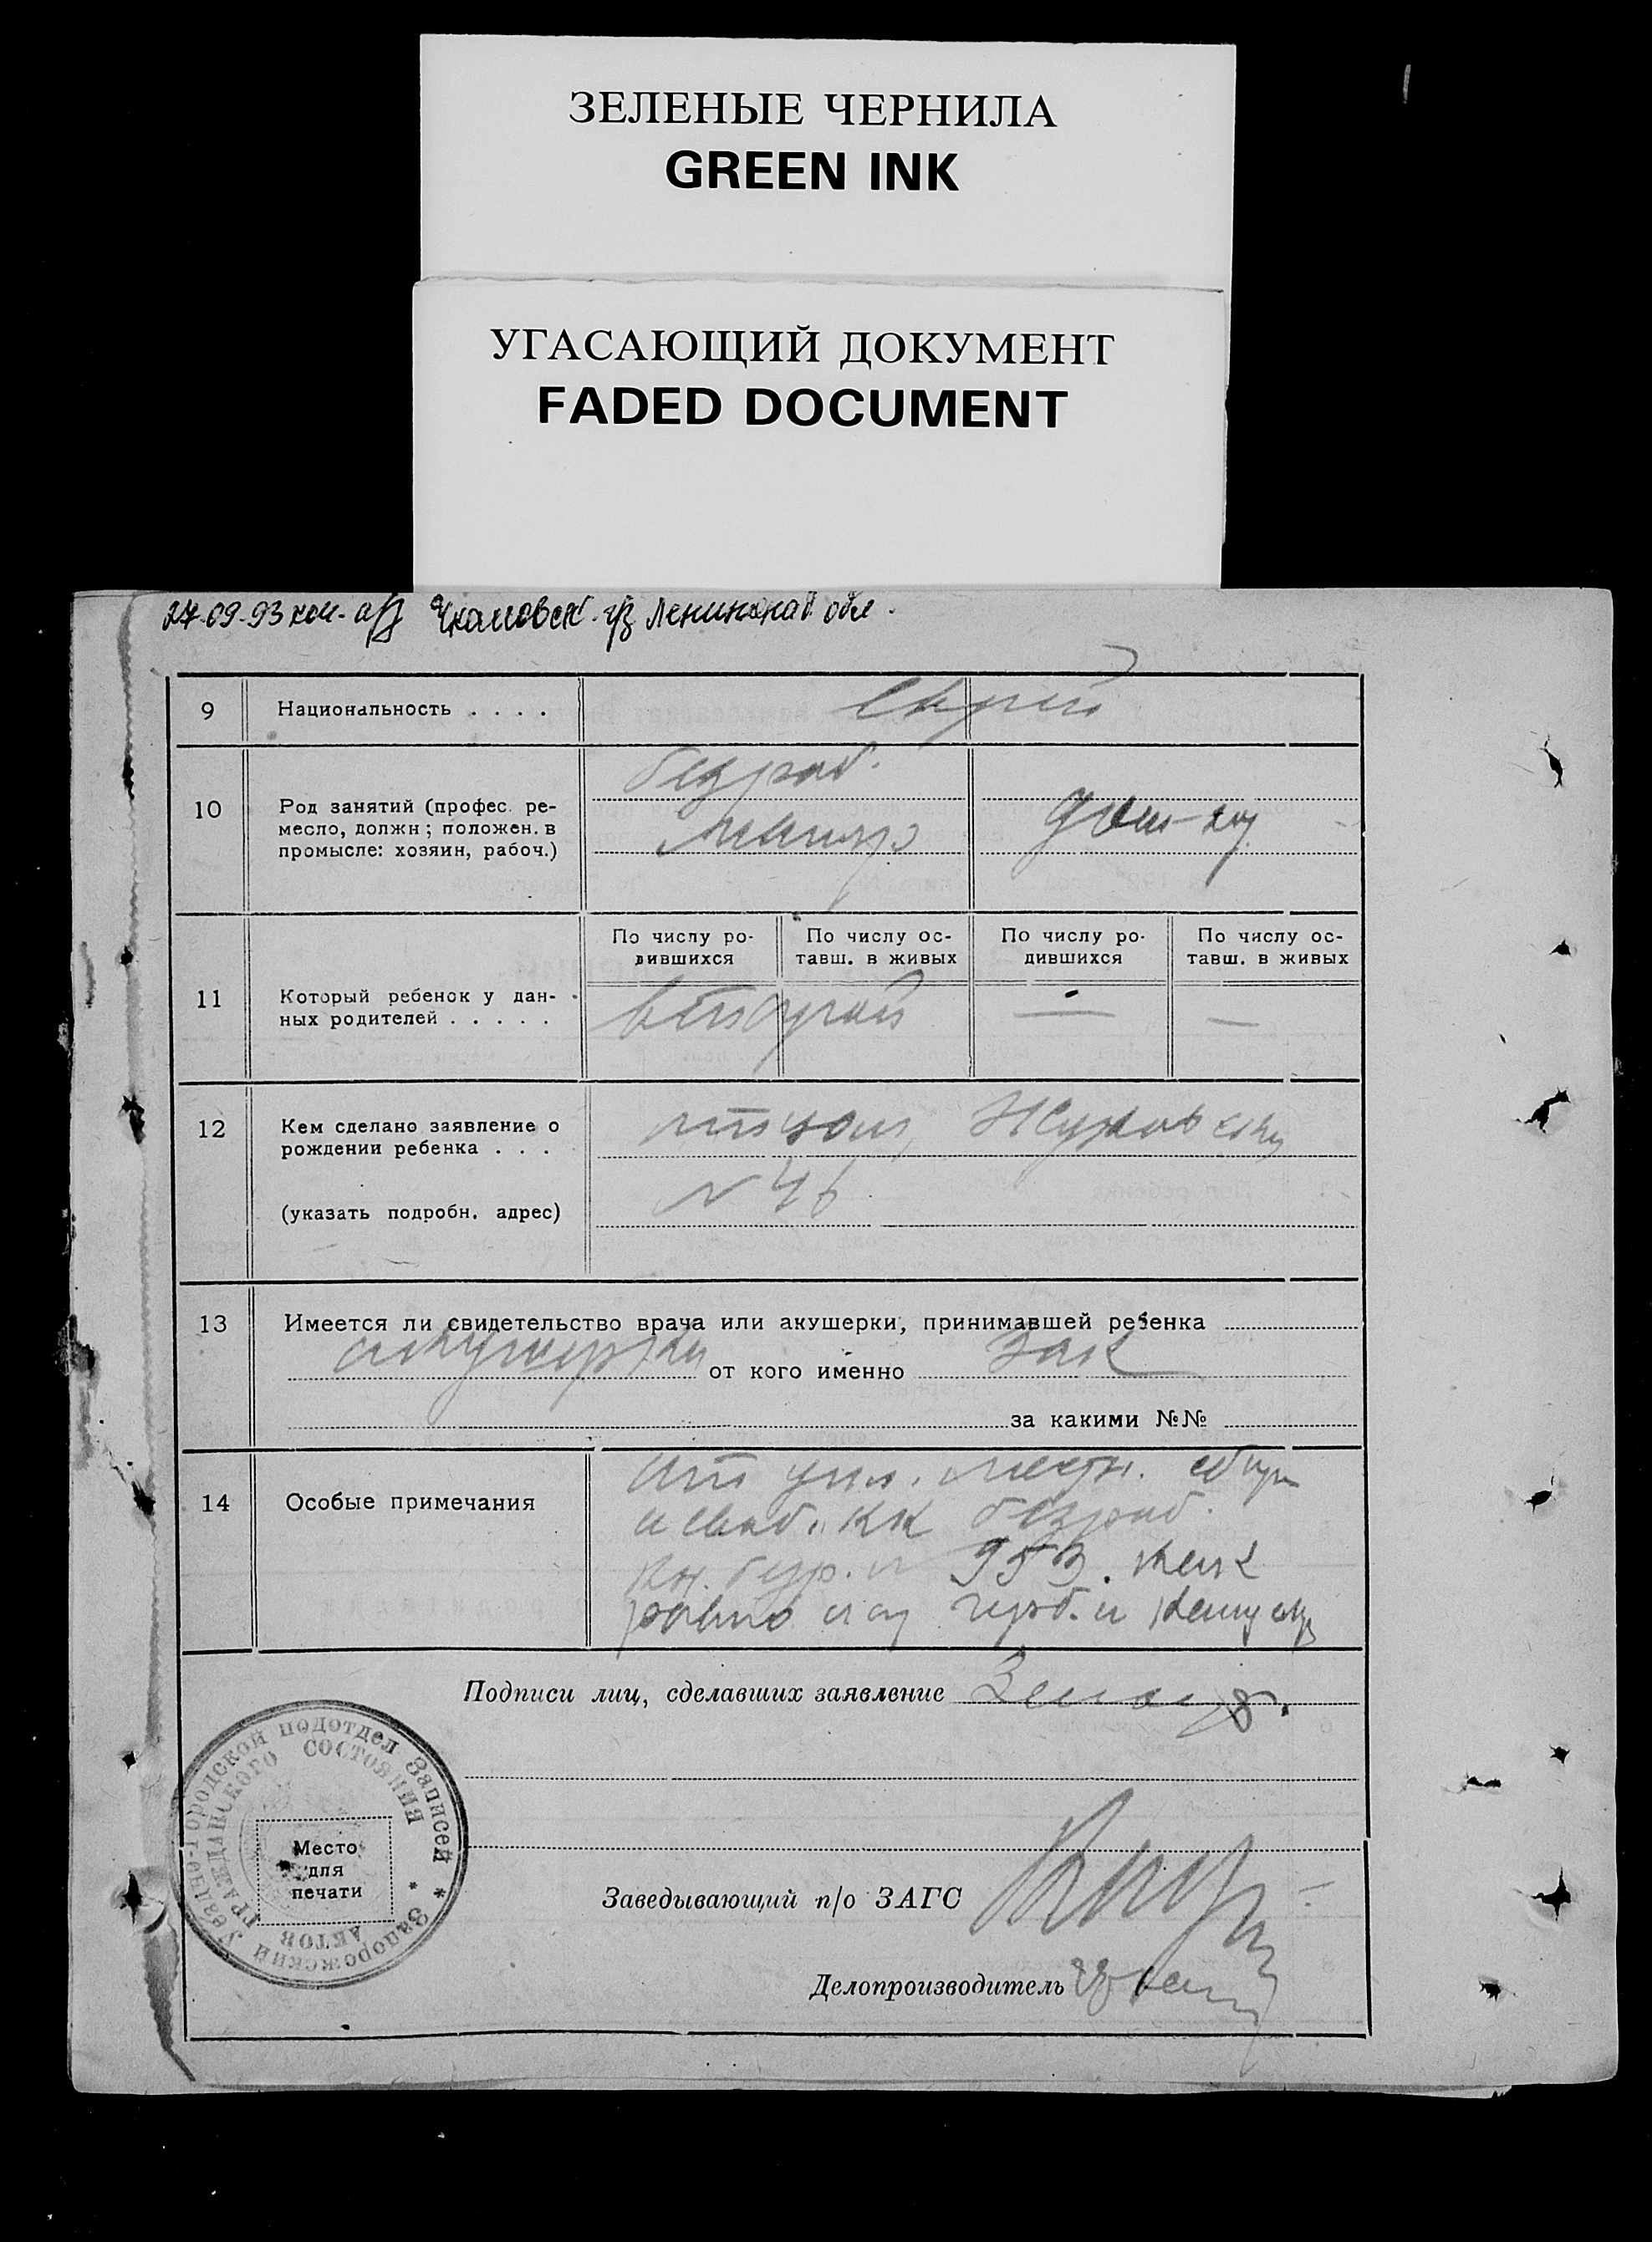 ЗЕЛЕНЫЕ ЧЕРНИЛА
GREEN INK
УГАСАЮЩИЙ ДОКУМЕНТ
FADED DOCUMENT
27.09.93 коп- а/з Чкаловск. г/з Ленинонаб обл.
9 Национальность . . . . еврей
10 Род занятий (профес. ре-
месло, должн; положен. в
промысле: хозяин, рабоч.)
безраб.
маляр
дом-хоз
11 Который ребенок у дан-
ных родителей . . . . .
По числу ро-
дившихся
По числу ос-
тавш. в живых
По числу ро-
дившихся
По числу ос-
тавш. в живых
второй — —
12 Кем сделано заявление о
рождении ребенка . . .
(указать подробн. адрес)
отцом Жуковск
N 46
13 Имеется ли свидетельство врача или акушерки, принимавшей ребенка
акушерки от кого именно Зак
за какими №№
14 Особые примечания
от упл. местн. сбора
освоб. кк безраб.
кн. бир. N 953.
Подписи лиц, сделавших заявление
Уездно-городской подотдел Записей * Запорожский *
АКТОВ ГРАЖДАНСКОГО СОСТОЯНИЯ
Место
для
печати
Заведывающий п/о ЗАГС
Делопроизводитель